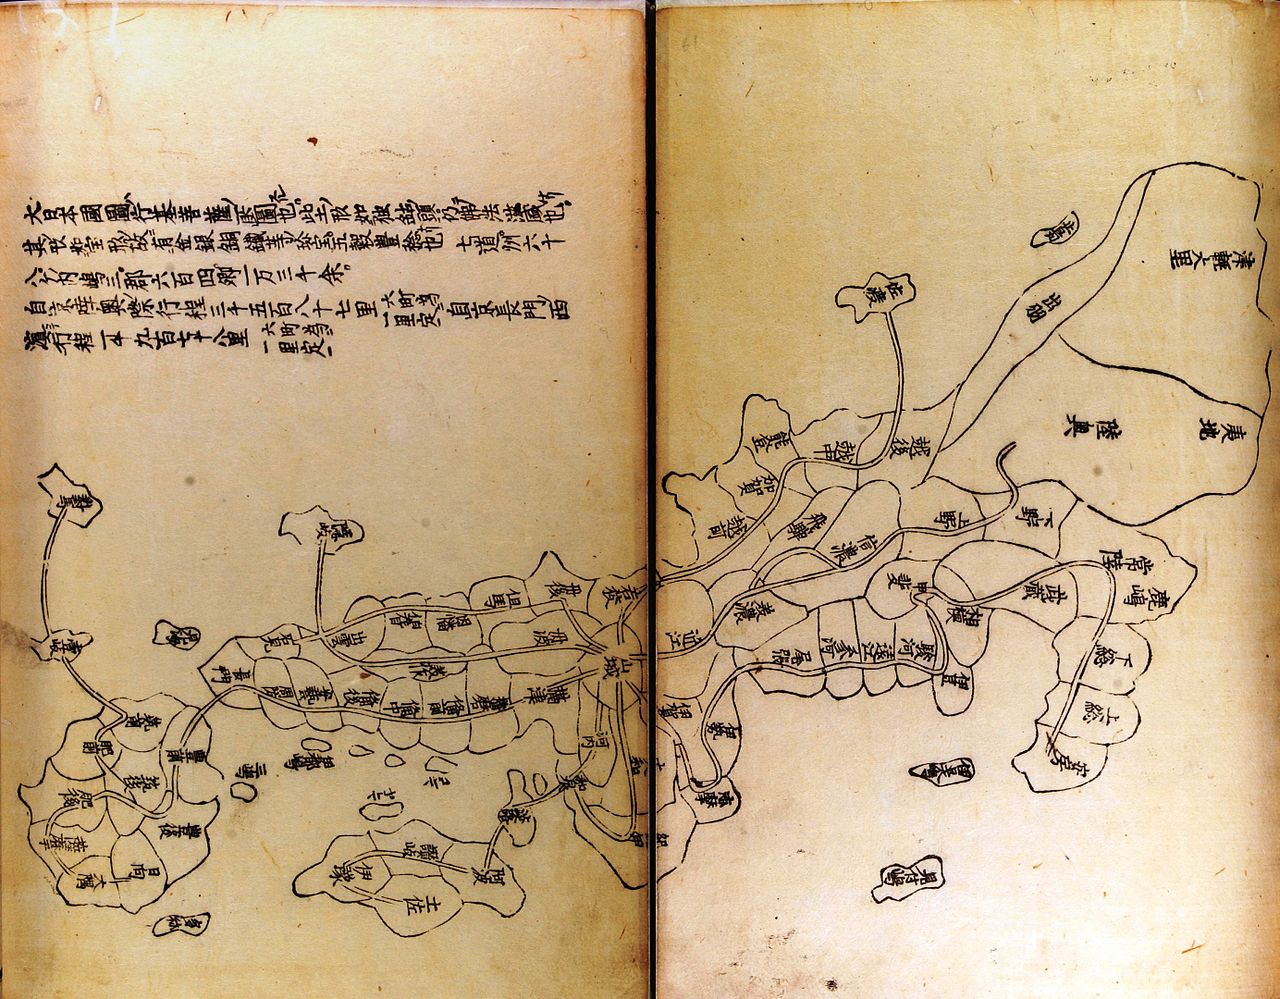 大日本國圖行基菩薩所圖也此土形如
頭仍佛法滋盛也
其形如宝形故有金銀銅鐵等珍宝五穀豊稔也 七道 州六十
八 内嶋三 郡六百四 郷一万三千余
自京陸奥際行程三千五百八十七里 六町為一里定 自京長門西
濱行程一千九百七十八里 六町為一里定
津輕大里
夷地
陸奥
出羽
佐渡
越後
越中
能登
加賀
越前
飛騨
信濃
上野
下野
常陸
鹿嶋
武蔵
下総
上総
安房
甲斐
相模
伊豆
駿河
遠江
参河
尾張
美濃
近江
伊賀
伊勢
志摩
見付嶋
山城
河内
大和
和泉
摂津
丹波
丹後
但馬
因幡
伯耆
出雲
石見
隠岐
美作
播磨
備前
備中
備後
安藝
周防
長門
淡路
阿波
讃岐
伊豫
土佐
三嶋
對馬
壹岐
筑前
筑後
肥前
肥後
豊前
豊後
日向
大隅
薩摩